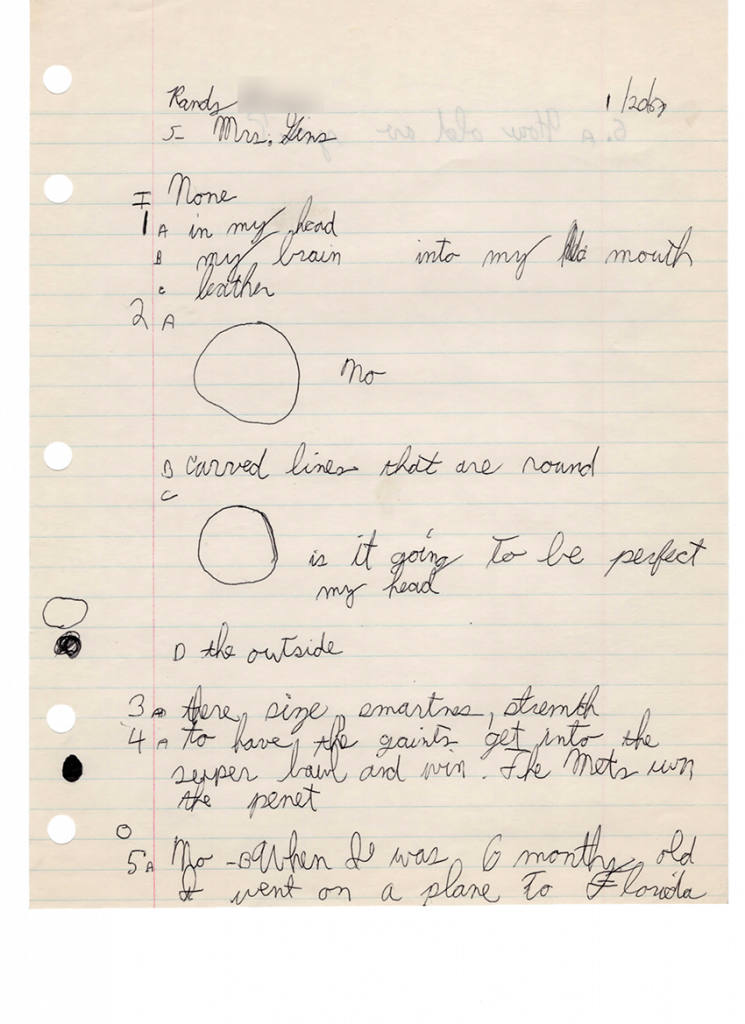 Randy
1/20/67
5- Mrs. Gins
I None
1 A in my head
B my brain into my mouth
C leather
2 A
No
B Carved lines that are round
C
is it going to be perfect
my head
D the outside
3 A there size, smartnes, stremth
4 A to have the gaints get into the
supper bawl and win. The Mets win
the penet
5 A No - B When I was 6 months old
I went on a plane to Florida